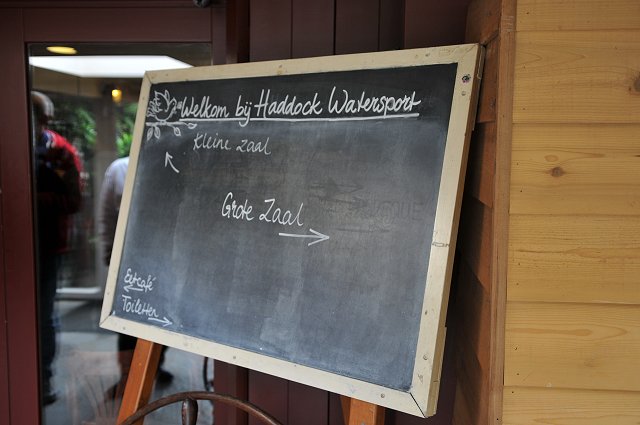 Welkom bij Haddock Watersport
Kleine zaal
Grote Zaal
Eetcafé
Toiletten